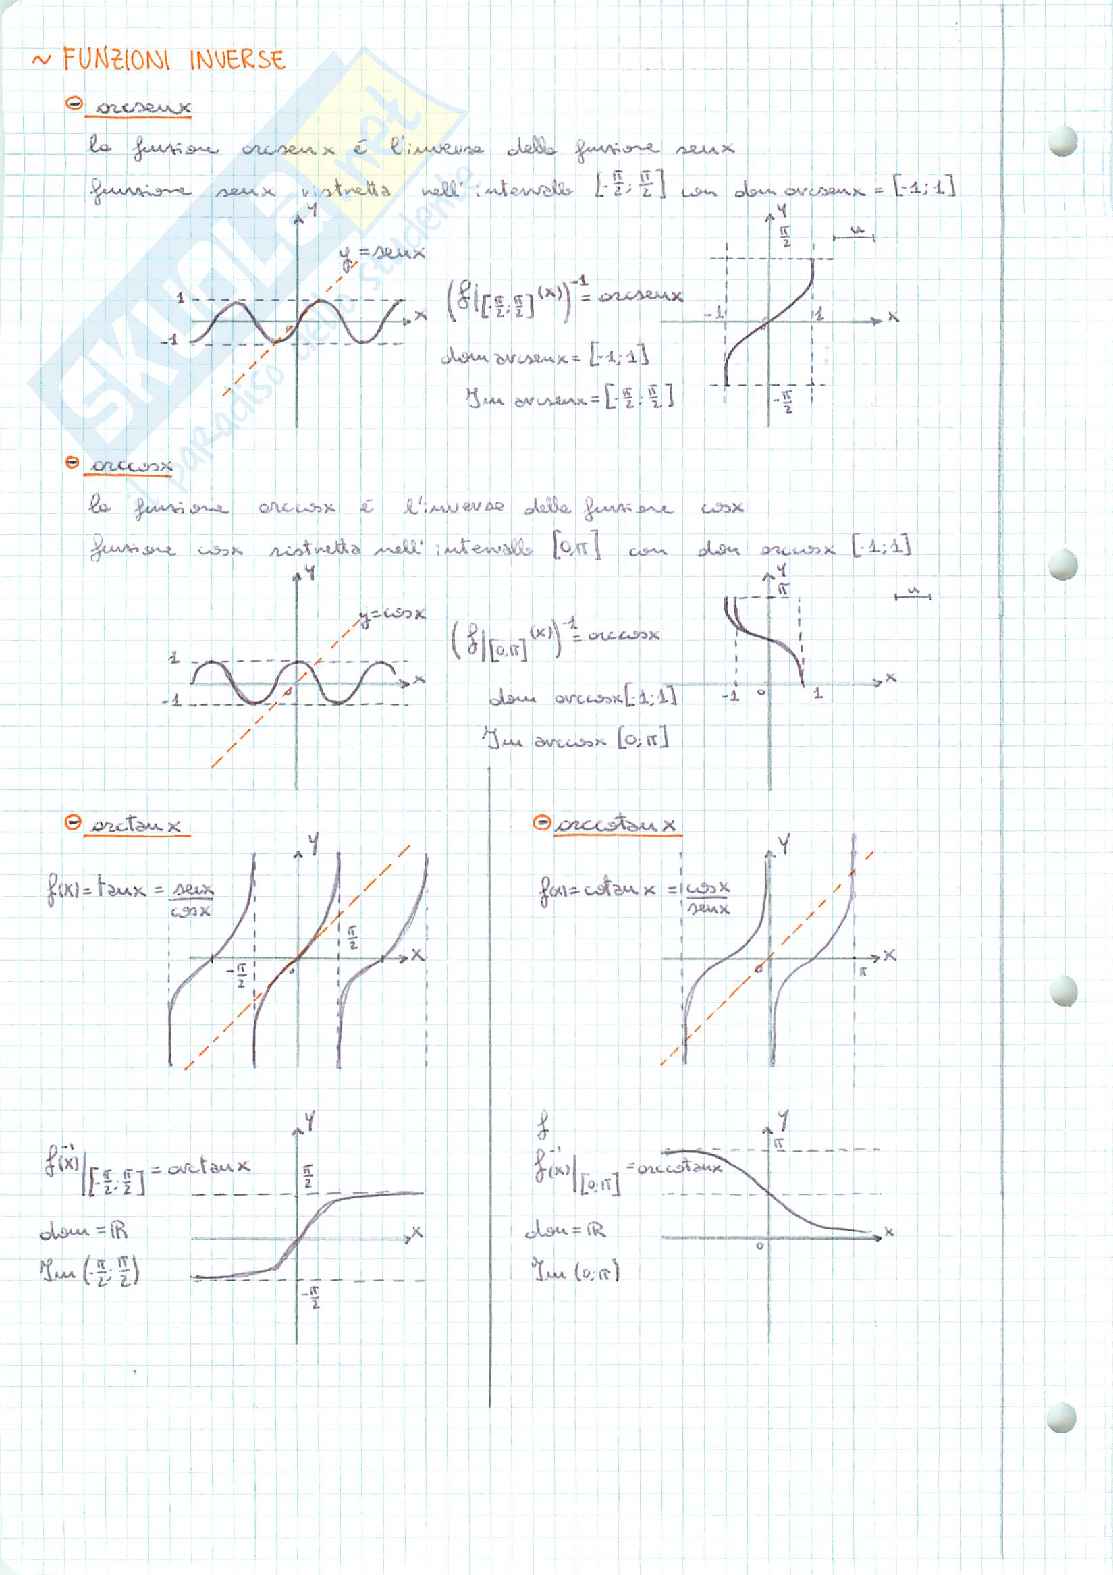 ~ FUNZIONI INVERSE
⊖ arcsenx
la funzione arcsenx è l'inversa della funzione senx
funzione senx ristretta nell'intervallo [-π/2; π/2] con dom arcsenx = [-1; 1]
y
y = senx
1
-1
0
x
(f|[-π/2; π/2](x))⁻¹ = arcsenx
dom arcsenx = [-1; 1]
Im arcsenx = [-π/2; π/2]
y
π/2
u
-1
1
x
-π/2
⊖ arccosx
la funzione arccosx è l'inversa della funzione cosx
funzione cosx ristretta nell'intervallo [0;π] con dom arccosx [-1; 1]
y
y=cosx
1
-1
0
x
(f|[0;π](x))⁻¹ = arccosx
dom arccosx[-1; 1]
Im arccosx [0; π]
y
π
u
-1
0
1
x
⊖ arctanx
f(x) = tanx = senx/cosx
y
-π/2
0
π/2
x
f⁻¹(x)|[-π/2; π/2] = arctanx
dom = ℝ
Im (-π/2; π/2)
y
π/2
x
-π/2
⊖ arccotanx
f(x) = cotanx = cosx/senx
y
0
π
x
f
f⁻¹(x)|[0;π] = arccotanx
dom = ℝ
Im (0; π)
y
π
0
x
SKUOLA.net
il paradiso dello studente